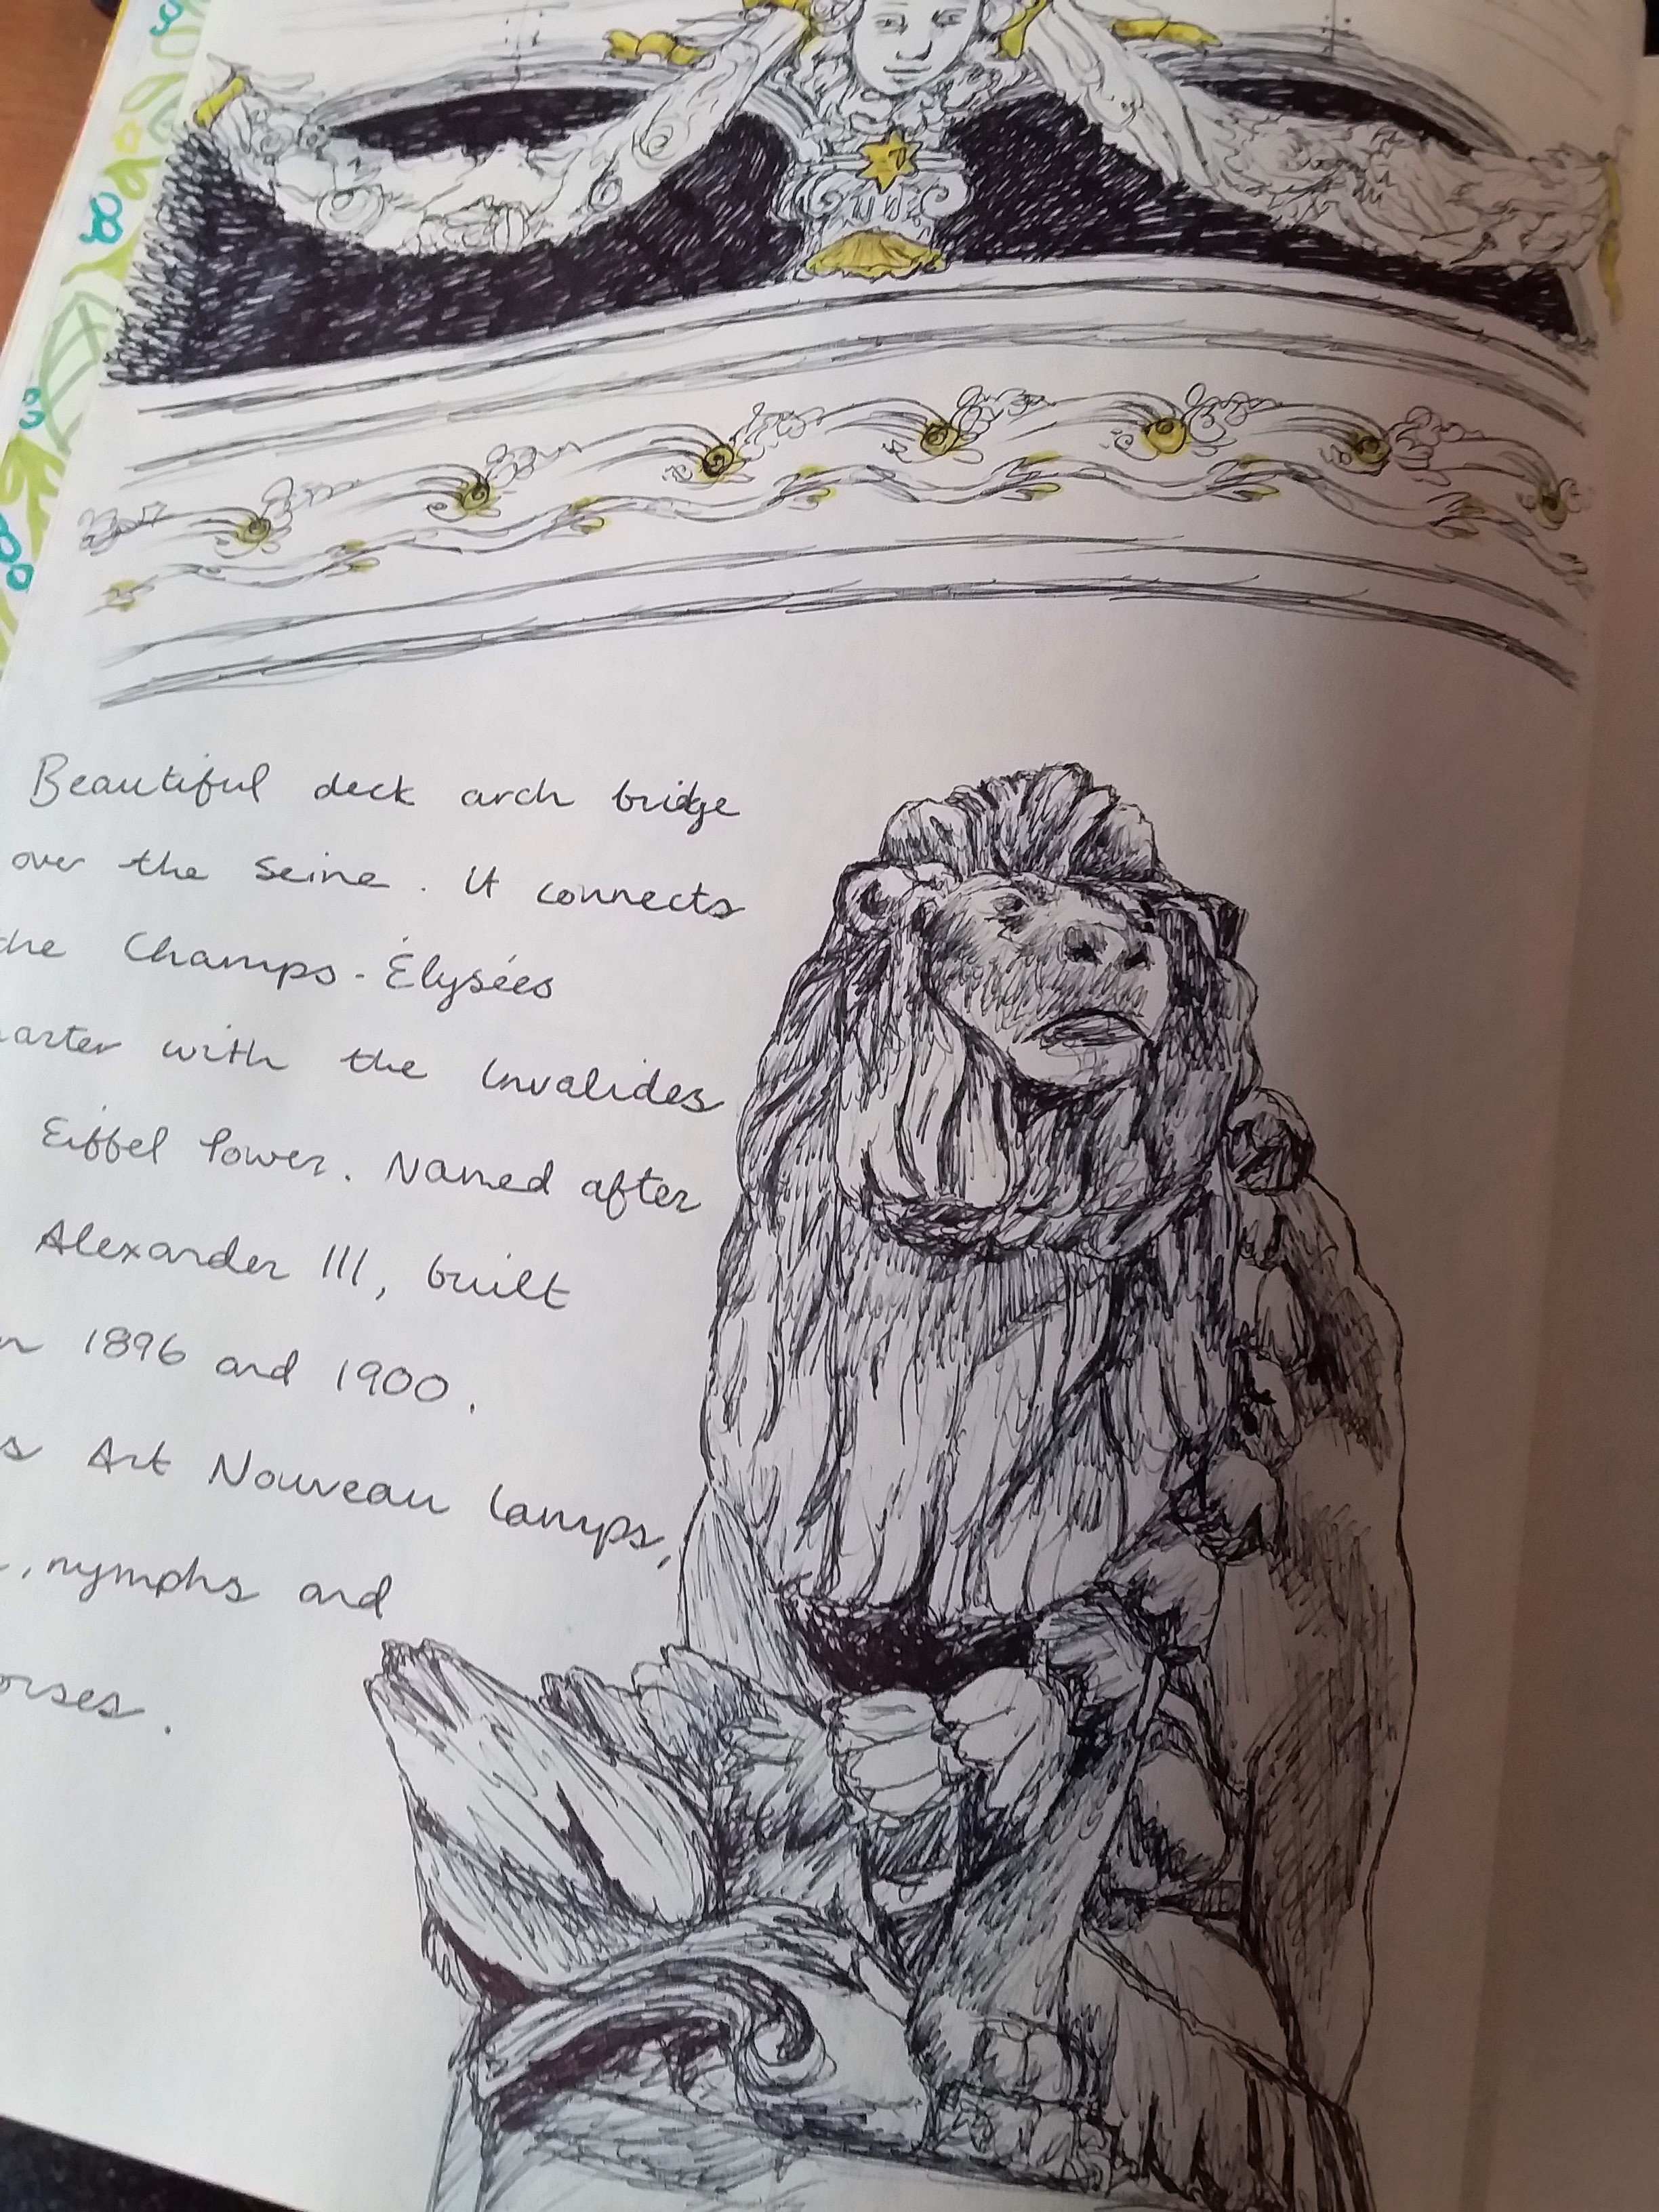 Beautiful deck arch bridge
over the Seine. It connects
the Champs-Élysées
with the Invalides
Eiffel Tower. Named after
Alexander III, built
1896 and 1900.
Art Nouveau lamps,
, nymphs and